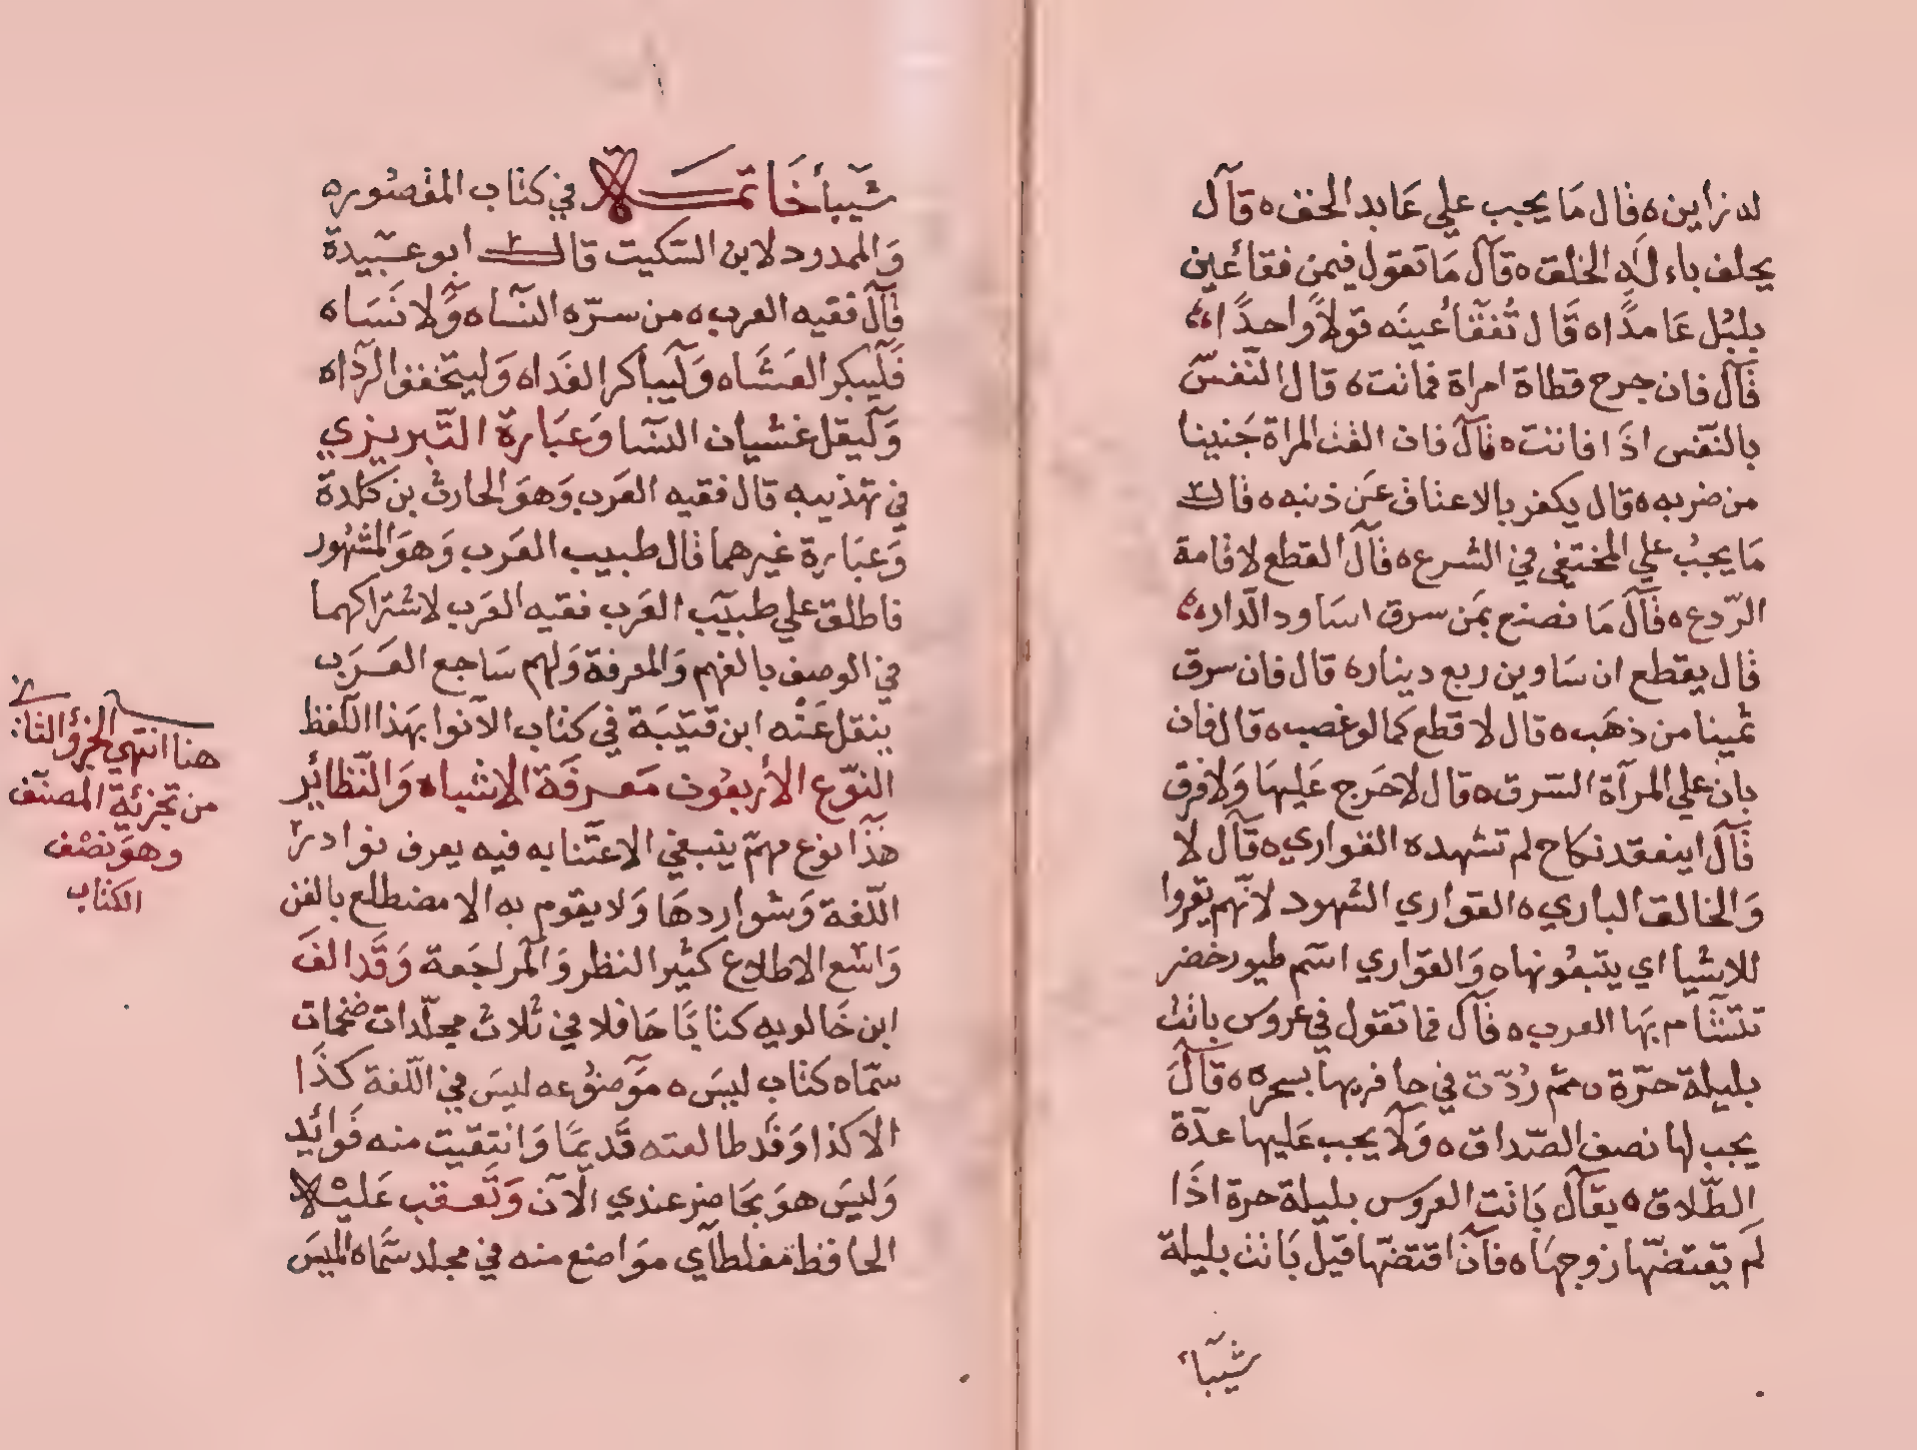 له نزاين ه قال مَا يجب علي عَابد الحق ه قآل
يحلف باء لاه الخلق ه قآل مَا تقول فيمن فقأ عَين
بلبُل عَامدًا ه قَال تُفقَأ عُينَه قولاً واحدًا
قآل فان جرح قطاة امراة فماتت ه قال النّفسّ
بالنّفس اذَا فاتت ه قآل فان القت المراة جَنينا
من ضربه ه قال يكفر بالاعتاق عَن ذنبه ه قال
مَا يجبُ علي المختفي في الشرع ه قآل القطع لاقامة
الرّدع ه قآل مَا نصنع بمَن سرق اساود الدّار ه
قال يقطع ان سَاوين ربع دينار ه قال فان سرق
ثمينا من ذهَب ه قال لا قطع كما لو غصب ه قال فان
بان علي المرآة السّرق ه قال لا حَرج عَليهَا وَلا فرق
قآل اينعقد نكاح لم تشهده القواري ه قآل لا
وَالخالق الباري ه القواري الشهود لانّهم يقروا
للاشيا اي يتبعُونها ه وَالقواري اسم طيور خضر
تتشَآم بهَا العرب ه قآل فما تقول في عَروس باتت
بليلة حرّة ه ثم رُدّت في حافرتها بسحره ه قآلَ
يجب لها نصف الصّداق ه وَلَا يجب عَليها عدّة
الطّلاق ه يقآل بَاتت العروس بليلة حرة اذَا
لَم يقتضّها زوجهَا ه فآن اقتضّها قيل بَاتت بليلة
شيبآء
شيبآء خَاتمـــة في كتاب المقصور ه
وَالممدود لابن السّكيت قال ابو عبّيدة
قآل فقيه العرب ه من سرّه النّسَا ه وَلا نَسَا ه
فَليبكر العَشَا ه وَليباكر الغَدا ه وَليخفف الرّدا ه
وَليقل غشيان النسّا وَعبَارة التّبريزي
في تهذيبه قال فقيه العَرب وَهوَ الحارث بن كلدة
وَعبَارة غيرهما قال طبيب العَرب وَهوَ المشهُور
فاطلق علي طبيَب العَرب فقيه العَرب لاشتراكهما
في الوصف بالفهم وَالمعرفة وَلهم سَاجع العَـرَب
ينقل عَنْه ابن قتيّبَة في كتاب الآنوا بهَذا اللّفظ
النّوع الأربعُون مَعـرفَة الاشباه وَالنّظائر
هَذَا نوع مهمّ ينبغي الاعتّنا به فيه يعرف نوادر
اللّغة وَشواردهَا وَلا يقوم به الا مضطلع بالفن
وَاسّع الاطلاع كثير النظر وَالمراجَعة وَقَد الفَ
ابن خَالويه كتابًا حَافلا في ثلاث مجلّدات ضخمات
سمّاه كتاب ليسَ ه مَوضوُعه ليسَ في اللّغة كذَا
الا كذا وَقَد طالعته قَديمًا وَانتقيت منه فَوائد
وَليسَ هوَ بحَاضر عندي الآن وَتَّعـقب عَليْه
الحافظ مغلطآي موَاضع منه في مجلد سمّاه الميسَ
هنا انتهي الجزؤ الثاني
من تجزئة المصنّف
وهوَ نصْف
الكتاب